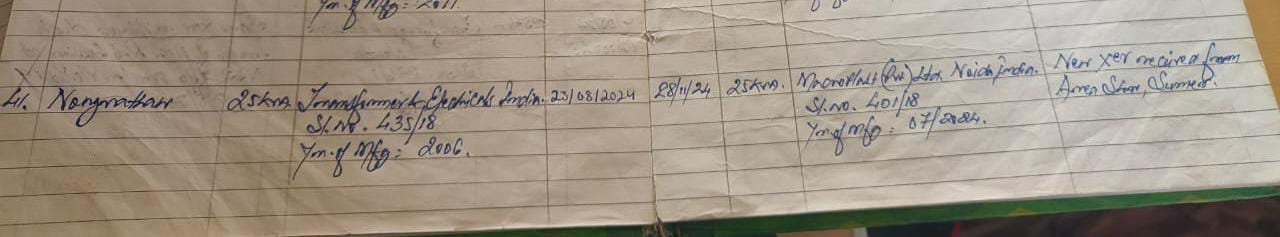 Yr. of Mfg: 2011.
41. 25kva. Transformer & Electricals India. 23/08/2024 28/11/24 25kva. Macroplast (Pvt) Ltd. Noida India. New Xer received from
Sl. No. 435/18 Sl. No. 401/18 Area Store, Sumer.
Yr. of Mfg: 2006. Yr. of Mfg: 07/2024.